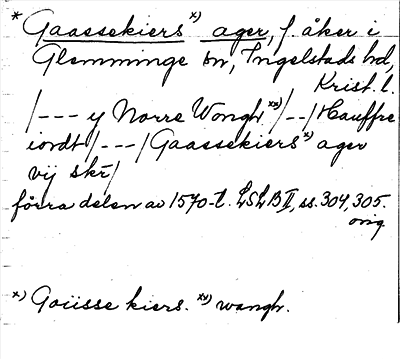 * Gaassekiers x) ager, f. åker i
Glemminge sn, Ingelstads hd,
Krist. l.
/--- y Norre Wongh xx)/--/Hauffre
iordt/---/Gaassekiers x) ager
vij skr/
förra delen av 1570-t. LSLB II, ss. 304, 305.
orig.
x) Goüsse kiers. xx) wangh.